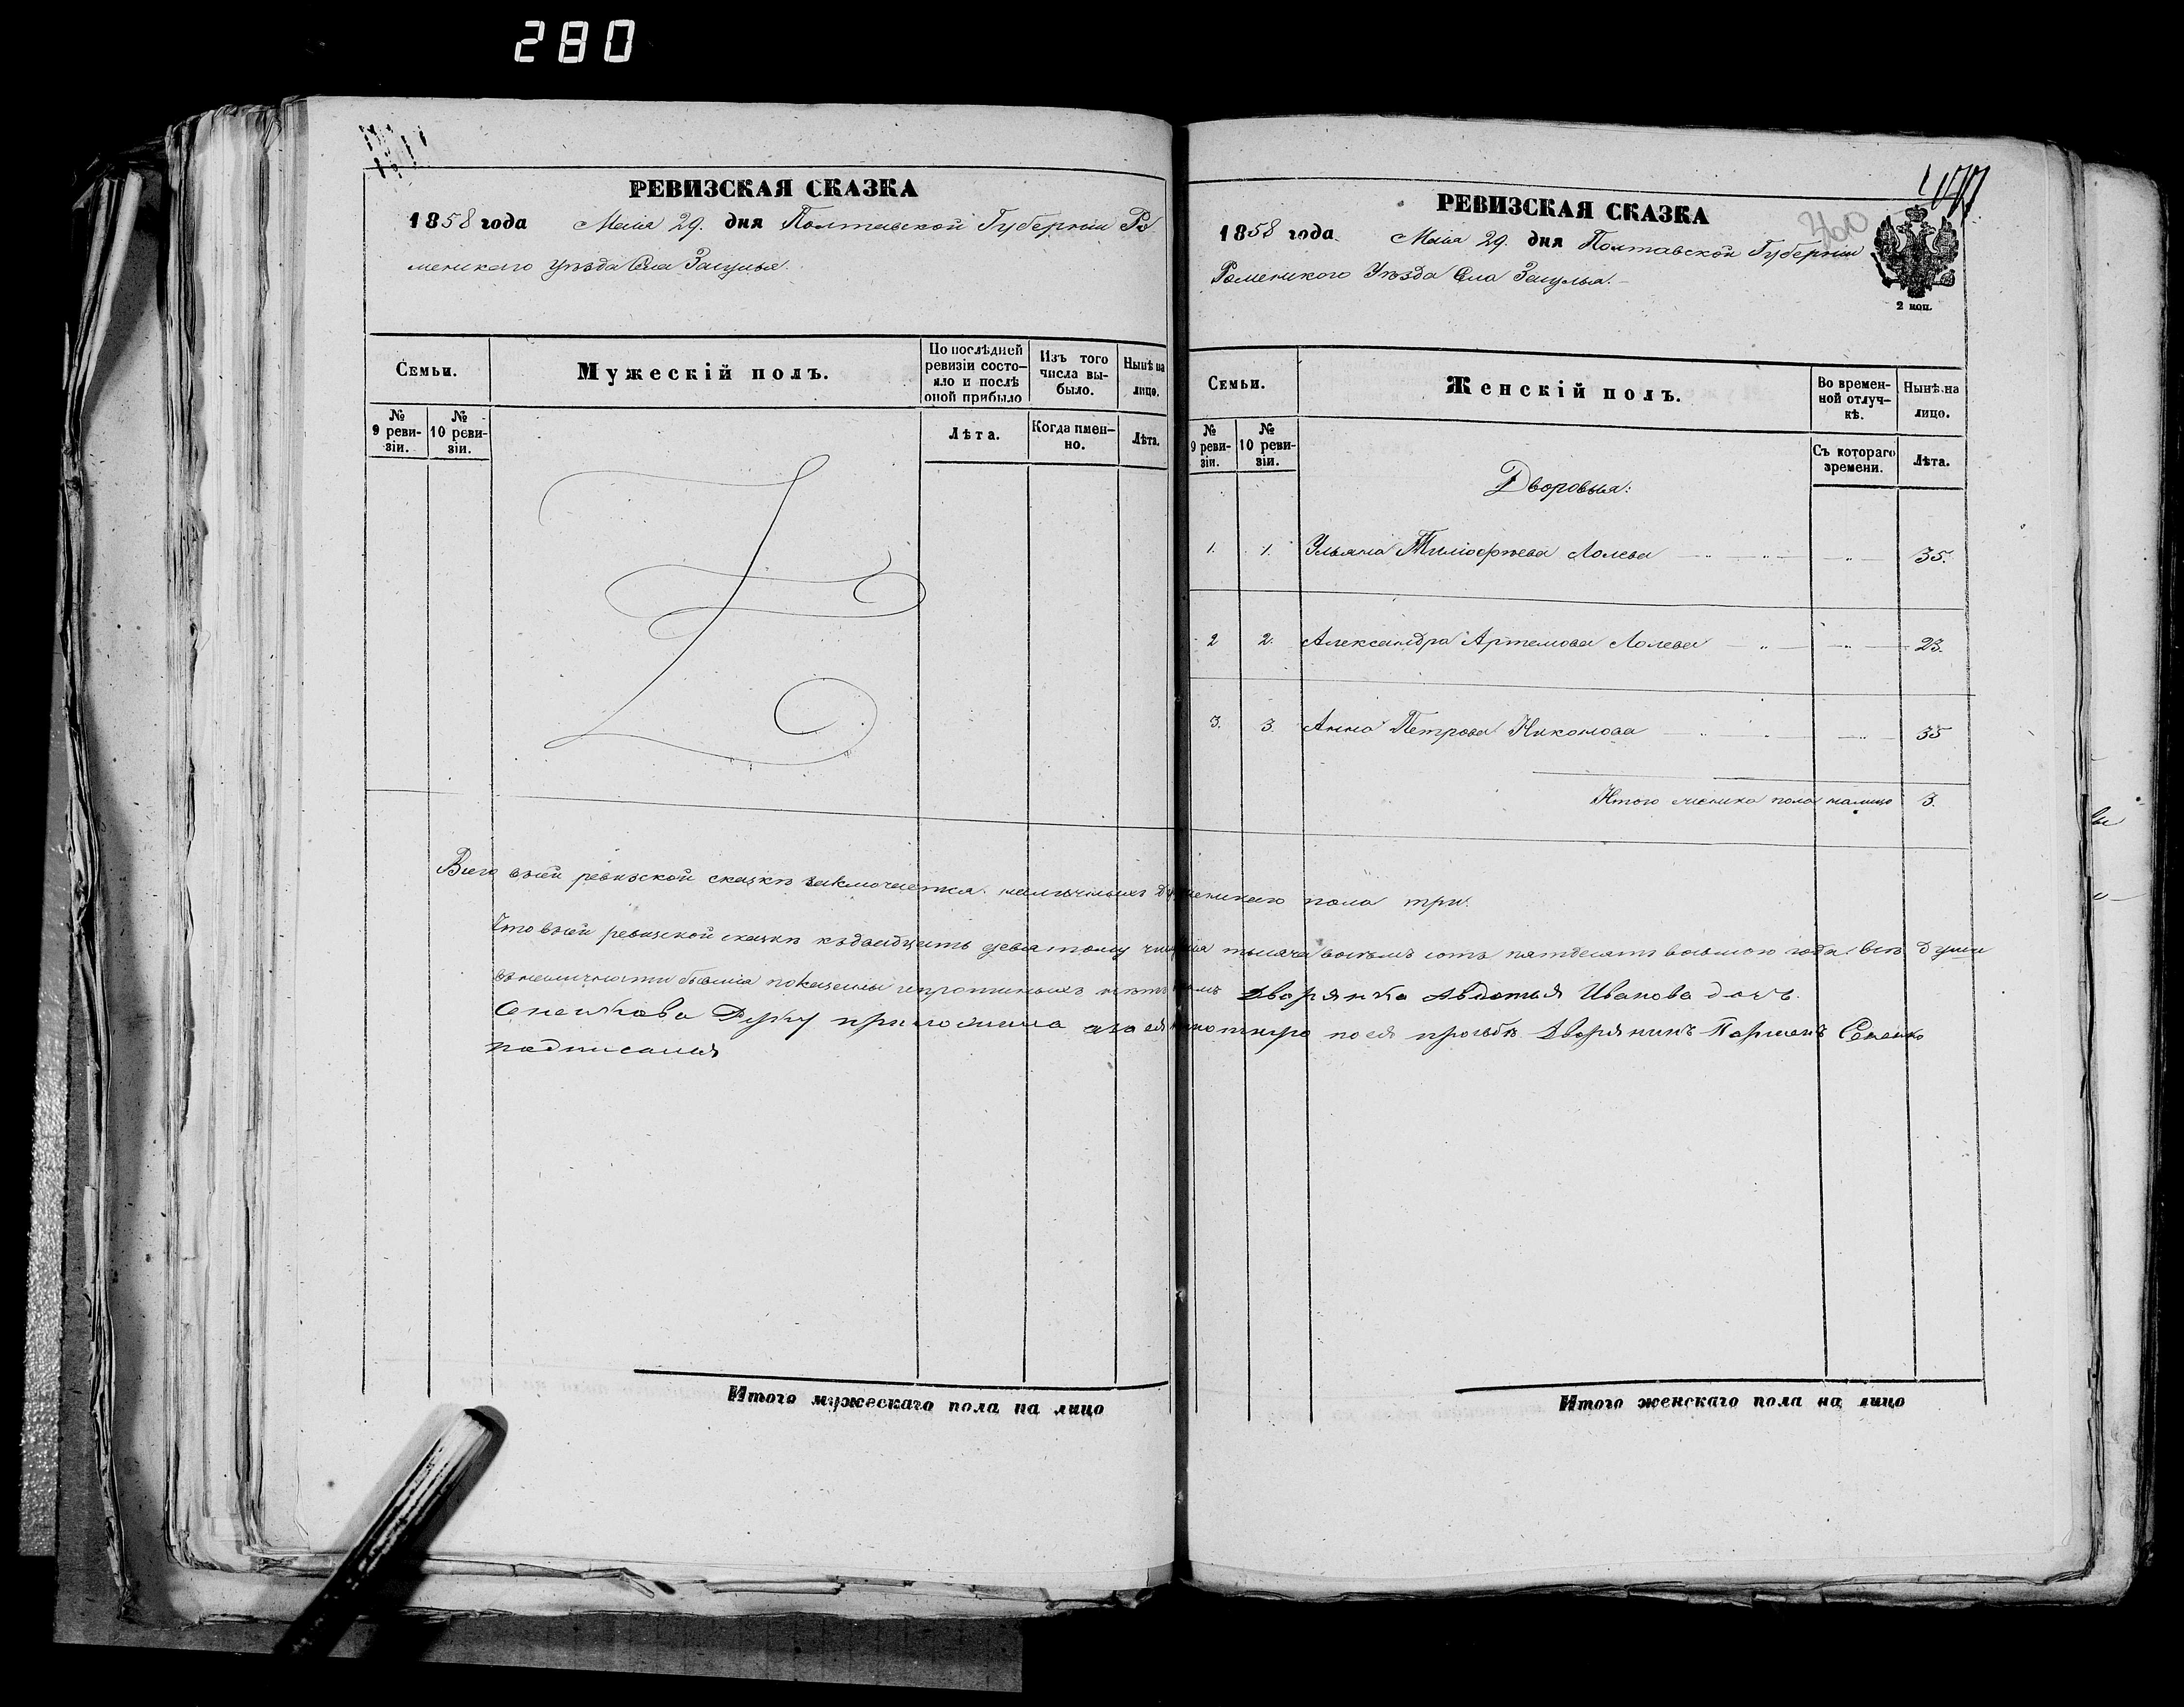 280
РЕВИЗСКАЯ СКАЗКА
1858 года Маія 29. дня Полтавской Губерніи Ро
менскаго уѣзда Села Засулья.
Семьи.
Мужескій полъ.
По послѣдней ревизіи состояло и послѣ оной прибыло
Изъ того числа выбыло.
Нынѣ на лицо.
№ 9 ревизіи.
№ 10 ревизіи.
Лѣта.
Когда именно.
Лѣта.
РЕВИЗСКАЯ СКАЗКА
1858 года Маія 29. дня Полтавской Губерніи
Роменскаго Уѣзда Села Засулья.
2 коп.
Семьи.
Женскій полъ.
Во временной отлучкѣ.
Нынѣ на лицо.
№ 9 ревизіи.
№ 10 ревизіи.
Съ котораго времени.
Лѣта.
Дворовыя:
1. 1. Ульяна Тимофѣева Лолева 35.
2 2. Александра Артемова Лолева 23.
3. 3. Анна Петрова Никонова 35
Итого женска пола налицо 3.
Всего въ сей ревизской сказкѣ заключается наличныхъ душъ женскаго пола три.
Что въ сей ревизской сказкѣ къ двадцать девятому числа тысяча восемь сотъ пятдесятъ восьмого года всѣ души
въ наличности бывшіа показаны и прописныхъ нѣтъ Дворянка Авдотья Иванова дочь
Сененкова Руку приложила а за ея по ея прозьбѣ Дворянинъ Парменъ Сененко
подписался
Итого мужескаго пола на лицо
Итого женскаго пола на лицо